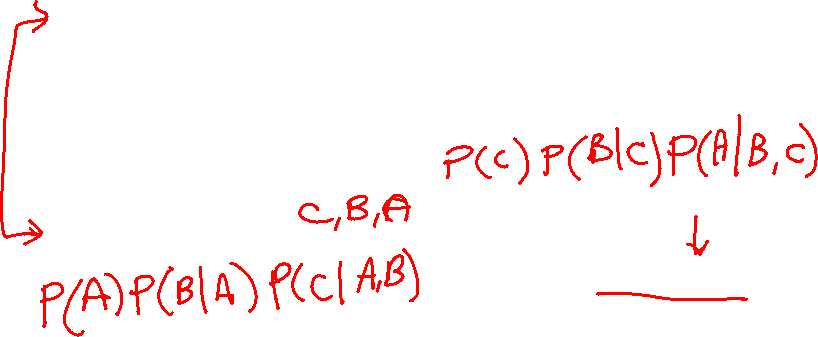 P(C) P(B|C) P(A|B,C)
C,B,A
P(A) P(B|A) P(C|A,B)